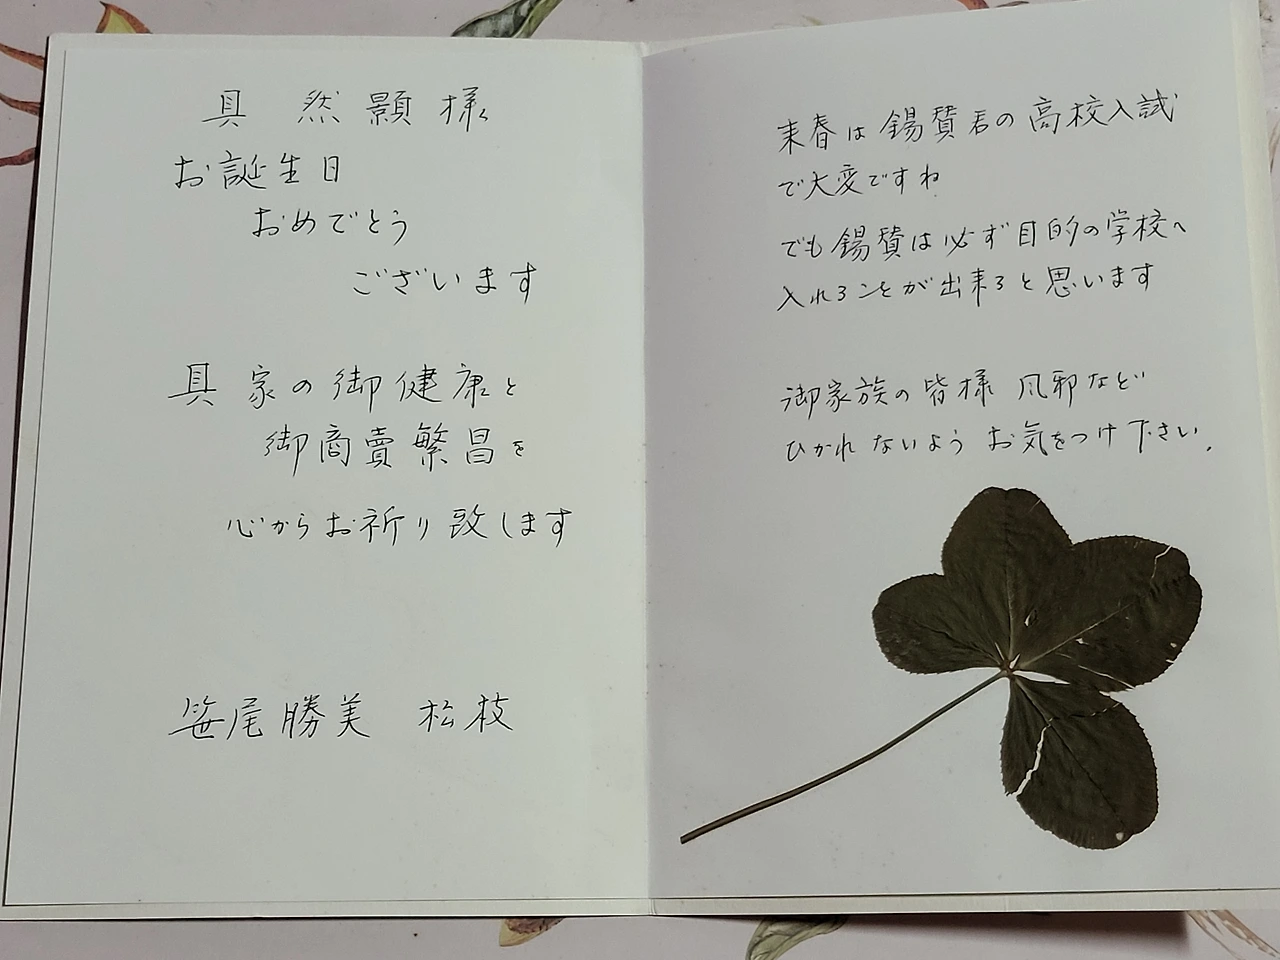 具 然顥様
お誕生日
おめでとう
ございます
具家の御健康と
御商賣繁昌を
心からお祈り致します
笹尾勝美 松枝
来春は錫賛君の高校入試
で大変ですね
でも錫賛は必ず目的の学校へ
入れることが出来ると思います
御家族の皆様 風邪など
ひかれないよう お気をつけ下さい.